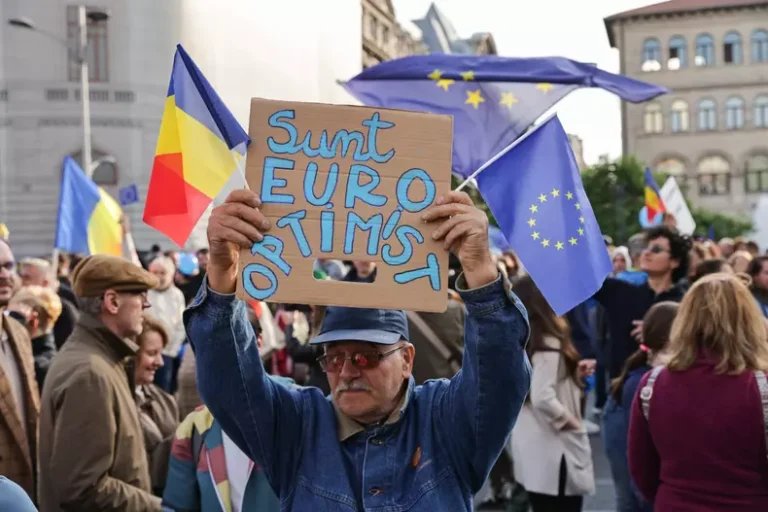 Sunt
EURO
OPTIMIST